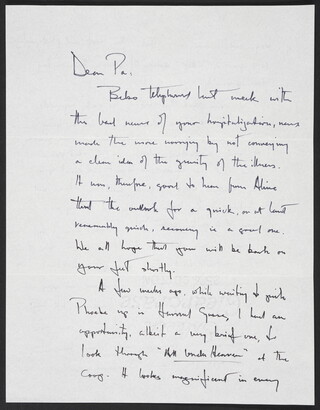 Dear Pa,
Bebo telephoned last week with
the bad news of your hospitalization, news
made the more worrying by not conveying
a clear idea of the gravity of the illness.
It was, therefore, good to hear from Aline
that the outlook for a quick, or at least
reasonably quick, recovery is a good one.
We all hope that you will be back on
your feet shortly.
A few weeks ago, while waiting to pick
Phoebe up in Harvard Square, I had an
opportunity, albeit a very brief one, to
look through "All Under Heaven" at the
Coop. It looks magnificent in every